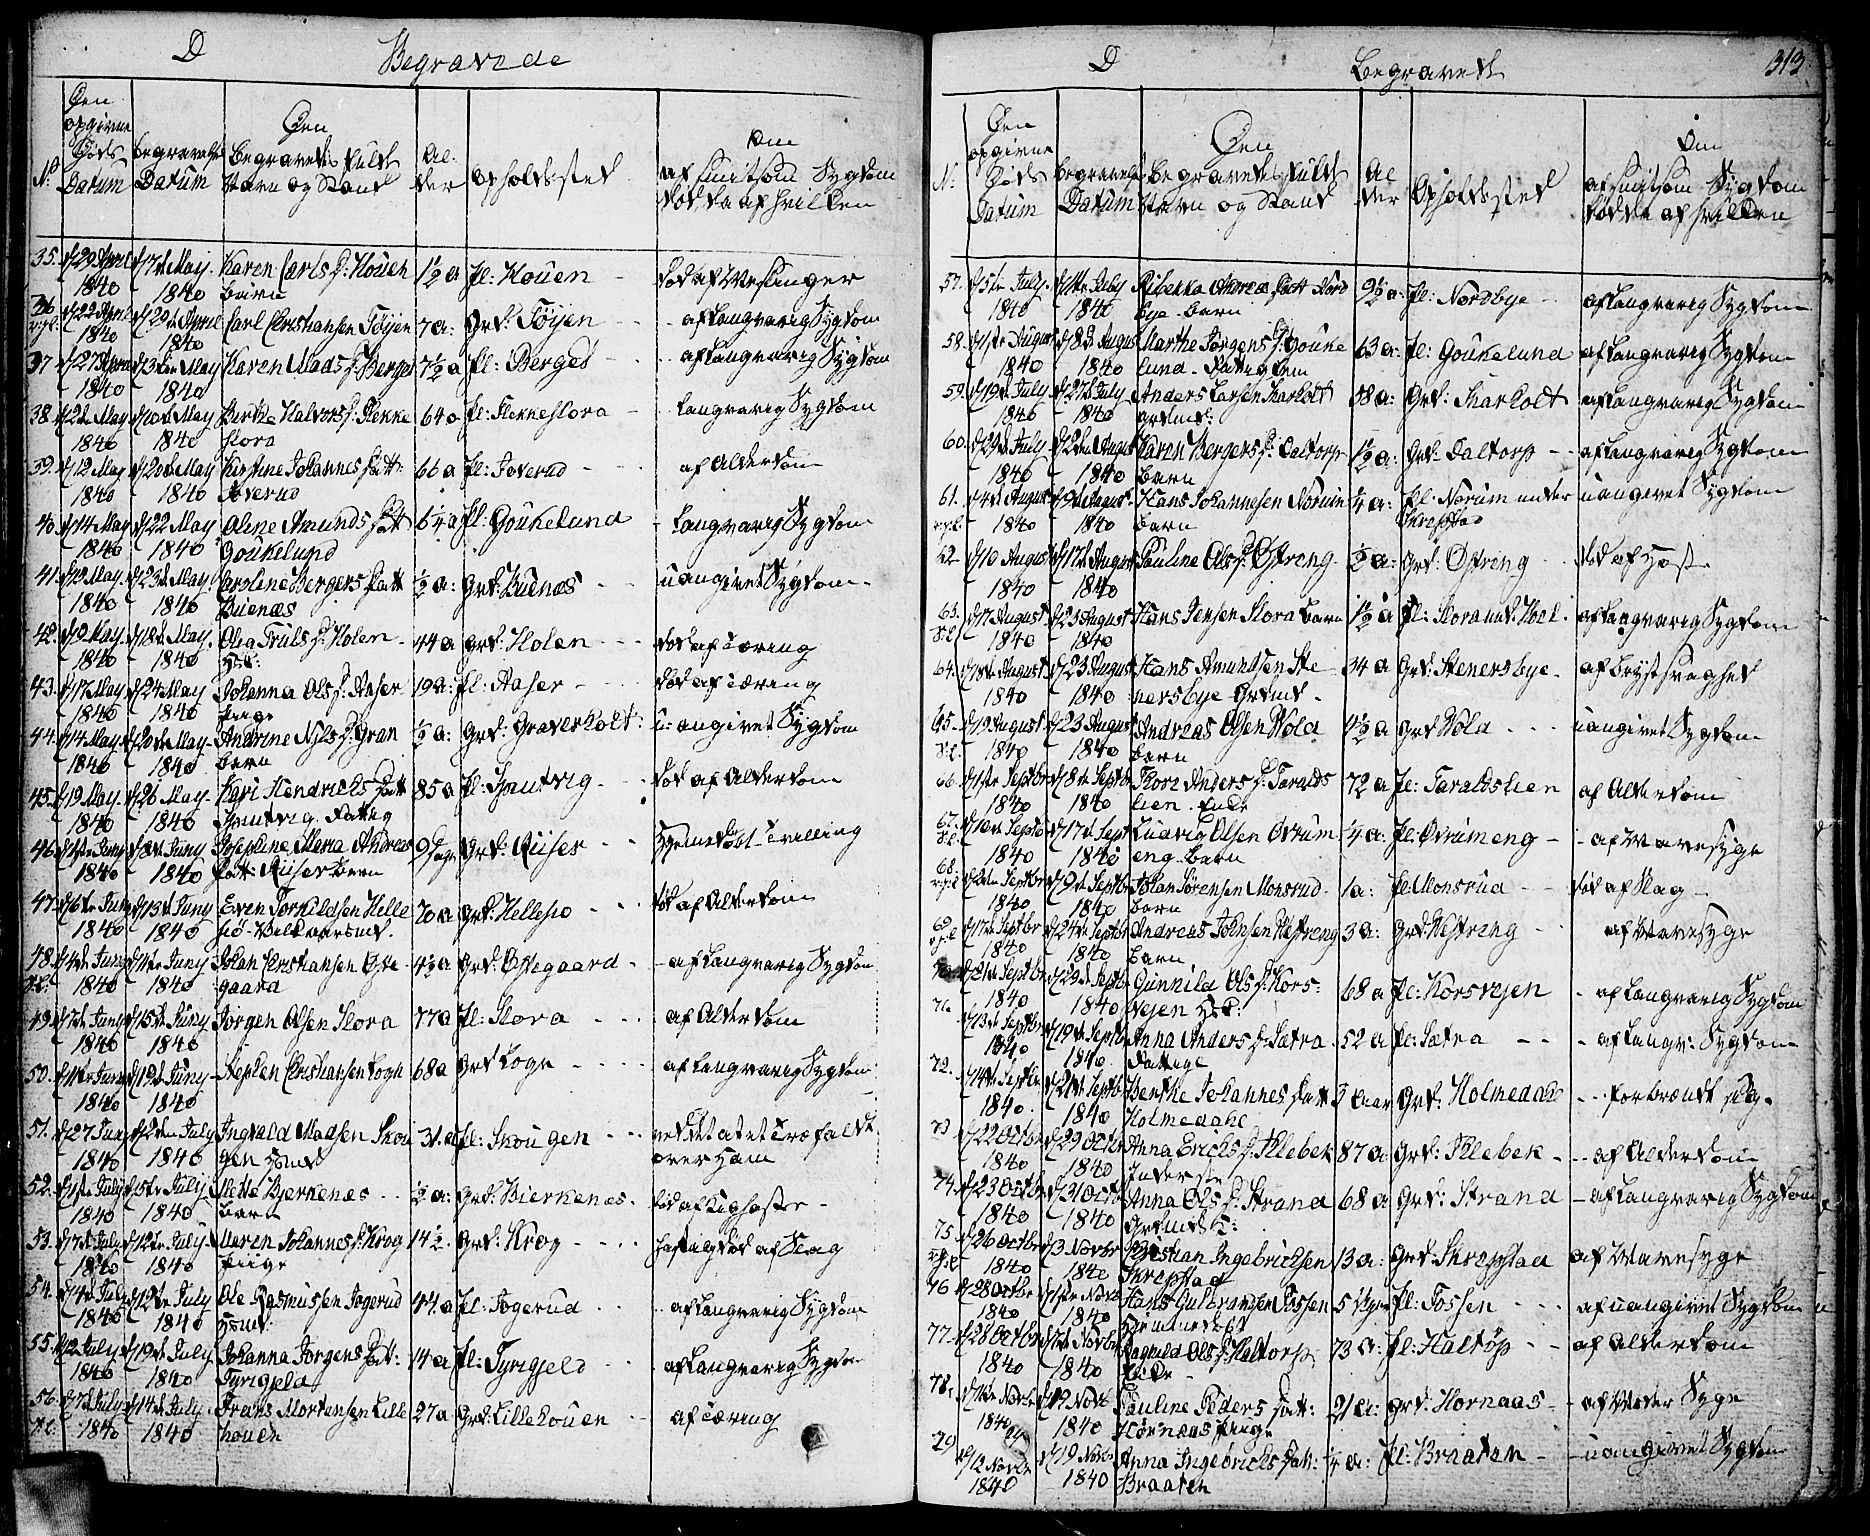 D Begravede
No
Den opgivne Døds Datum
begravelses Datum
Den Begravedes fulde Navn og Stand
Al- der
opholdssted
Om af smitsom Sygdom død da af hvilken
35. d/29 April 1840 d/17de May 1840 Karen Carls d: Houen barn 1½ a pl: Houen død af
36 d/22 April 1840 d/29de April 1840 Carl Christiansen Töyen 7 a: Grd: Töyen af langvarig Sygdom
37 d/27 April 1840 d/3die May 1840 Karen Mads d: Berget 7½ a pl: Berget af langvarig Sygdom
38. d/2de May 1840 d/10de May 1840 Berthe Halvors d: Flekke flora 64 a pl: langvarig Sygdom
39. d/12 May 1840 d/20de May 1840 Kirstine Johannes datt: Toverud 66 a pl: Toverud af Alderdom
40 d/14 May 1840 d/22 May 1840 Oline Amunds datt Goukelund 6¼ a pl: Goukelund langvarig Sygdom
41. May 1840 d/23de May 1840 Caroline Bergers datt Buenæs ½ a: Grd: Buenæs uangivet Sygdom
42. May 1840 d/18de May 1840 Olea Truls d: Holen 44 a Grd: Holen død af Tæring
43. d/17 May 1840 d/24 May 1840 Johanna Ols d: Aaser pige 19 a: pl: Aaser død af Tæring
44. d/14 May 1840 d/20de May 1840 Andrine Nils d: Gran barn ½ a: Grd: Graverholt: u: angivet Sygdom
45. d/19 May 1840 d/26 May 1840 Kari Hendricks datt Spontvig. Fattig 85 a pl: Spontvig død af Alderdom
46. Juny 1840 d/8de Juny 1840 Josephine Maria Andreas datt: Riiser barn 9 dage Grd: Riiser hjemmedøbt Tvilling
47. d/6te Juny 1840 d/13de Juny 1840 Even Torkildsen Helle siø 70 a Grd: Hellesiø død af Alderdom
48. d/4de Juny 1840 Juny 1840 Johan Christiansen Øste gaard 4½ a Grd: Østegaard af langvarig Sygdom
49. d/7de Juny 1840 d/15de Juny 1840 Jörgen Olsen Flora 77 a pl: Flora af Alderdom
50. Juny 1840 d/19de Juny 1840 Stephen Christiansen Togn 68 a Grd af langvarig Sygdom
51. d/27 Juny 1840 July 1840 Ingvald Madsen Skou gen 31 a pl: Skougen ved det at et Træ faldt over ham
52. July 1840 d/5te July 1840 Mette Bjerkenæs barn ½ a: Grd: Bierkenæs. død af Kighoste
53. d/7de July 1840 d/12te July 1840 Maren Johannes d: Krog pige 14½. Grd: Krog hastig død af Slag
54. d/4de July 1840 d/12te July 1840 Ole Rasmussen Togerud 44. a pl: Togerud af langvarig Sygdom
55. d/12 July 1840 d/19de July 1840 Johanna Jörgens datt: Tyrigjeld 14 a pl: Tyrigjeld af langvarig Sygdom
56. d/7de July 1840 d/14de July 1840 Frans Mortensen Lille houen 27 a Grd: Lillehouen af Tæring
D Begravede 313
No
Den opgivne Døds Datum
begravelses Datum
Den Begravedes fulde Navn og Stand
Al- der
Opholdssted
Om af smitsom Sygdom død da af hvilken
57. d/5te July 1840 July 1840 Ribekka Andrea datt Nord bye barn 9½ a: pl: Nordbye af langvarig Sygdom
58. d/1ste August 1840 d/8de August 1840 Marthe Jörgens d: Gouke lund Fattiglem 63 a: pl: Goukelund af langvarig Sygdom
59. d/19de July 1840 d/27de July 1840 Anders Larsen Harholdt 58 a: Grd: Harholdt af langvarig Sygdom
60. July 1840 August 1840 Karen Bergers d: Daltorp barn 1½ a: Grd: Daltorp af langvarig Sygdom
61. d/4de August 1840 d/9de August 1840 Hans Johannesen Norum barn ¼ a: pl: Norum under Skrepstad uangivet Sygdom
62 d/10 August 1840 d/17de August 1840 Pauline Ols d: Østreng ½ a: Grd: Østreng død af Host
63. d/17 August 1840 d/23 August 1840 Hans Jensen Flora barn 1½ a pl: Flora und: af langvarig Sygdom
64. August 1840 d/23 August 1840 Hans Amundsen Ste nersbye 34 a Grd: Stenersbye. af Brystsvaghed
65. d/19 August 1840 d/23 August 1840 Andreas Olsen Vold barn 4½ a Grd Vold uangivet Sygdom
66. d/1ste Septbr 1840 d/8de Septbr 1840 Thore Anders d: Taralds lien. Enke 72 a pl: Taraldslien af Alderdom
67. d/10de Septb 1840 d/17de Septb 1840 Ludvig Olsen Ovrum eng. barn ¼ a: pl: Ovrumeng af Vattersyge
68. Septbr 1840 d/9de Septbr 1840 Johan Sörensen Monsrud barn 1 a: pl: Monsrud død af Slag
69 d/17de Septbr 1840 d/24de Septbr 1840 Andreas Johnsen Vestreng barn 3 a: Grd: Vestreng af Vattersyge
70. d/21de Septbr 1840 d/29de Septbr 1840 Gunnild Ols d: Kors: vejen 68 a pl: Korsvejen af langvarig Sygdom
71. d/13de Septbr 1840 d/19de Septbr 1840 Anna Anders d: Sætra Fattige 52 a pl: Sætra af langv: Sygdom
72. d/14de Septbr 1840 d/21de Septbr 1840 Berthe Johannes datt Holmedahl 3 aar Grd: Holmedahl forbrændt sig
73 d/22 Octbr 1840 d/29 Octbr 1840 Anna Ericks d: Klebek Inderste 87 a: Grd: Klebek af Alderdom
74. d/23 Octbr 1840 d/31 Octbr 1840 Anna Ols d: Strand 68 a Grd: Strand af langvarig Sygdom
75. d/26 Octbr 1840 d/3 Novbr 1840 Christian Ingebrictsen Skrepstad 13 a: Grd: Skrepstad af Vattersyge
76 d/28 Octbr 1840 Novbr 1840 Hans Gulbrandsen Fossen hjemmedøbt pl: Fossen af uangivet Sygdom
77. d/28 Octbr 1840 Novbr 1840 Ragnild Ols d: Haltorp Enke 73 a: pl: Haltorp af Alderdom
78. Novbr 1840 d/19 Novbr 1840 Pauline Peders datt: Hornæs pige 21 a: Grd: Hornaas af Syge
79 d/12 Novbr 1840 d/19 Novbr 1840 Anna Ingebricks datt: Braaten ¼ a: pl: Braaten uangivet Sygdom